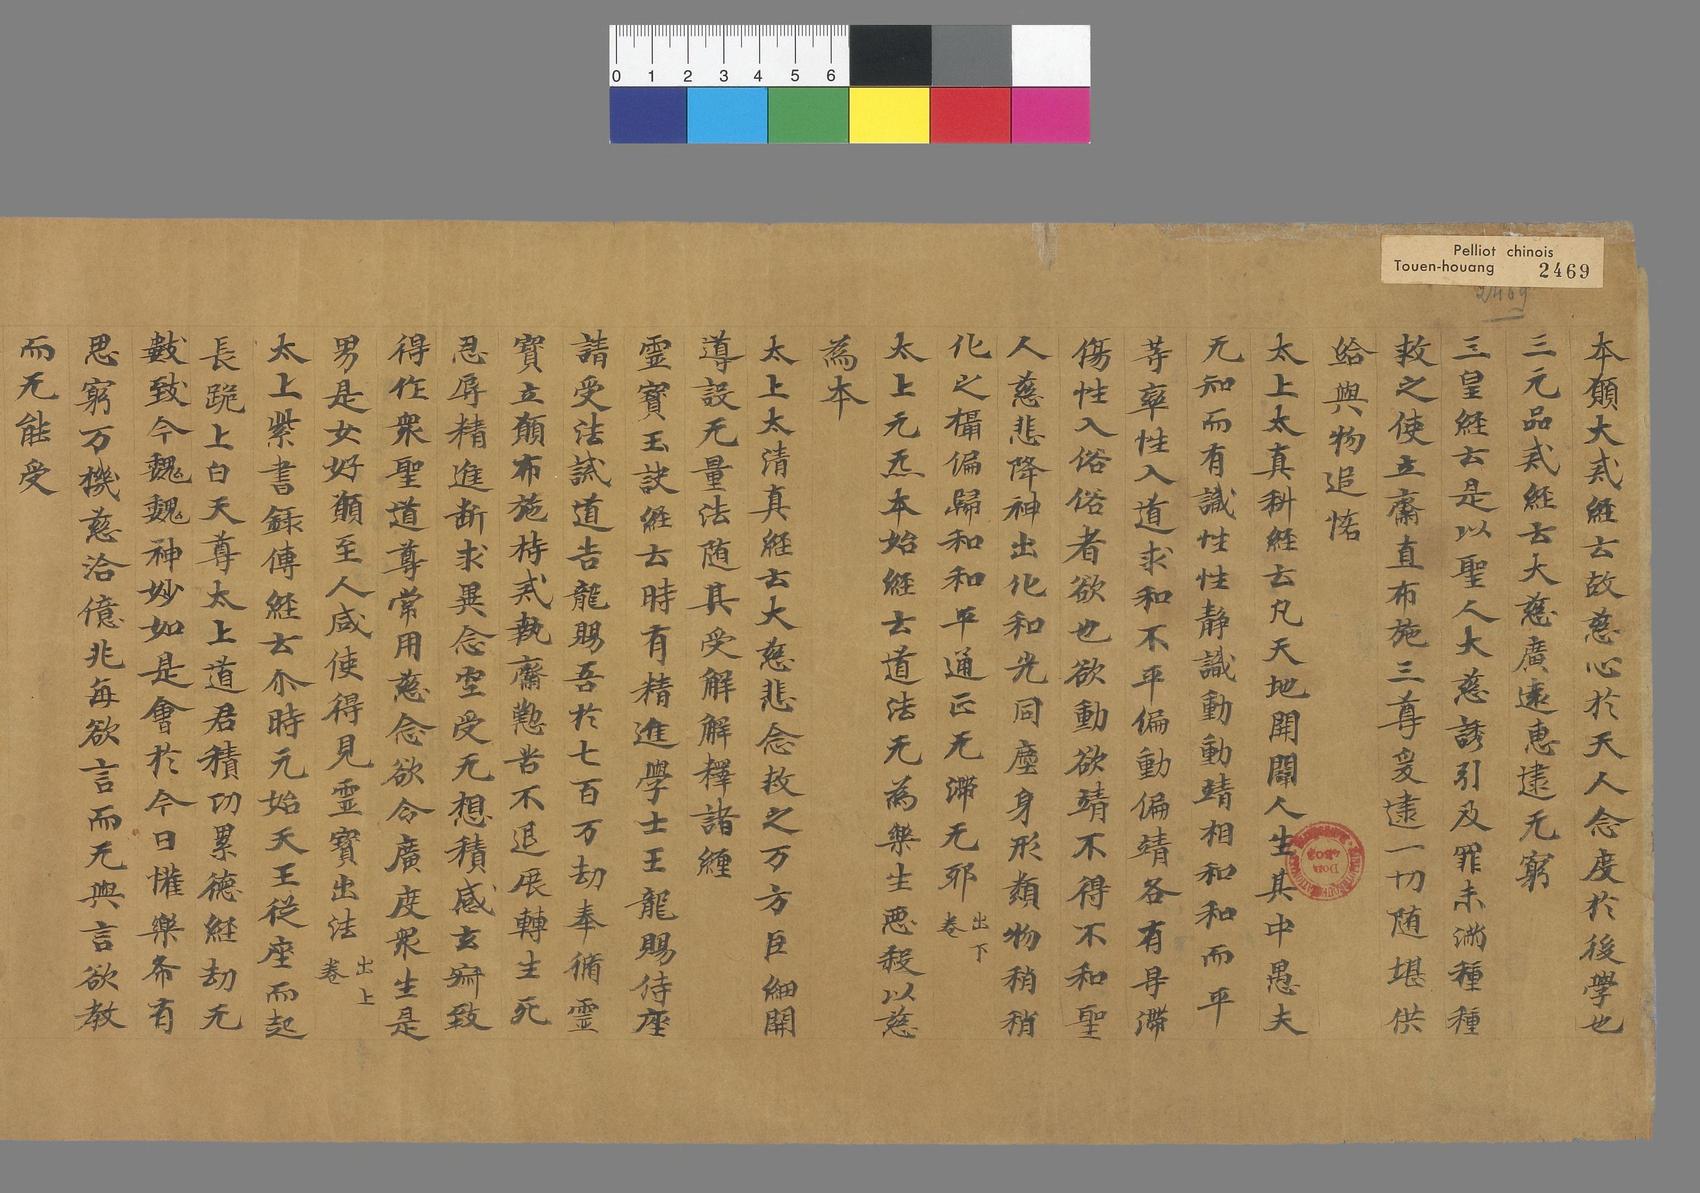 0 1 2 3 4 5 6
Pelliot chinois
Touen-houang 2469
2469
本願大貳経云故慈心於天人念度於後學也
三元品貳経云大慈廣遠惠逮无窮
三皇経云是以聖人大慈誘引及罪未滿種種
救之使立齋直布施三尊爰逮一切随堪供
給與物追惱
太上太真科経云凡天地開闢人生其中愚夫
无知而有識性性静識動動靖相和和而平
等率性入道求和不平偏動偏靖各有㝵滯
傷性入俗俗者欲也欲動欲靖不得不和聖
人慈悲降神出化和光同塵身形類物稍稍
化之攝偏歸和和平通正无滯无邪 出下卷
太上元炁本始経云道法无為樂生惡殺以慈
為本
太上太清真経云大慈悲念救之万方臣細開
導設无量法随其受解解釋諸纏
霊寳玉訣経云時有精進學士王龍賜侍座
請受法誡道告龍賜吾於七百万劫奉脩霊
寳立願布施持貳執齋懃苦不退展轉生死
忍辱精進断求異念空受无想積感玄寂致
得作衆聖道尊常用慈念欲令廣度衆生是
男是女好願至人咸使得見霊寳出法 出上卷
太上紫書録傳経云尒時元始天王従座而起
長跪上白天尊太上道君積功累德経劫无
數致今巍巍神妙如是會於今日懽樂希有
思窮万機慈洽億兆每欲言而无與言欲教
而无能受